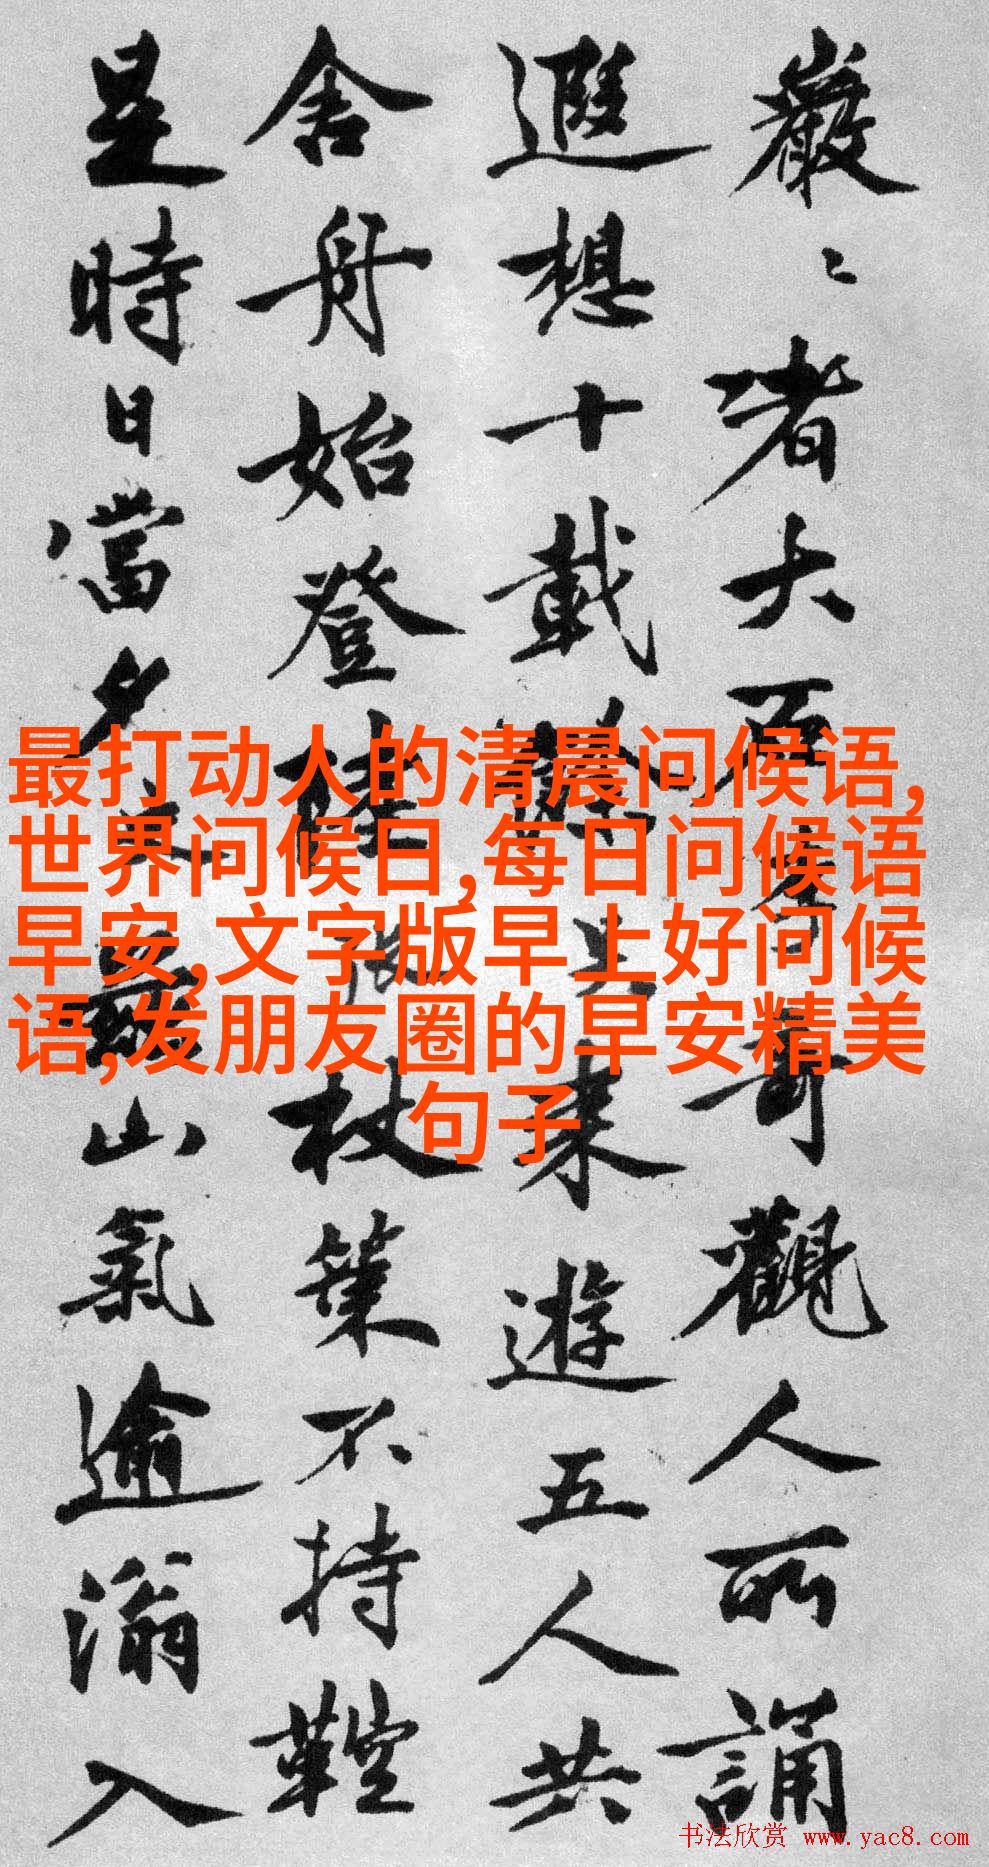 巖〻者大石奇觀人所誦
遐想十載餘來遊五人共
舍舟始登陸杖策不持鞚
是時日當夕山氣逾滃入
最打动人的清晨问候语,
世界问候日,每日问候语
早安,文字版早上好问候
语,发朋友圈的早安精美
句子
书法欣赏 www.yac8.com